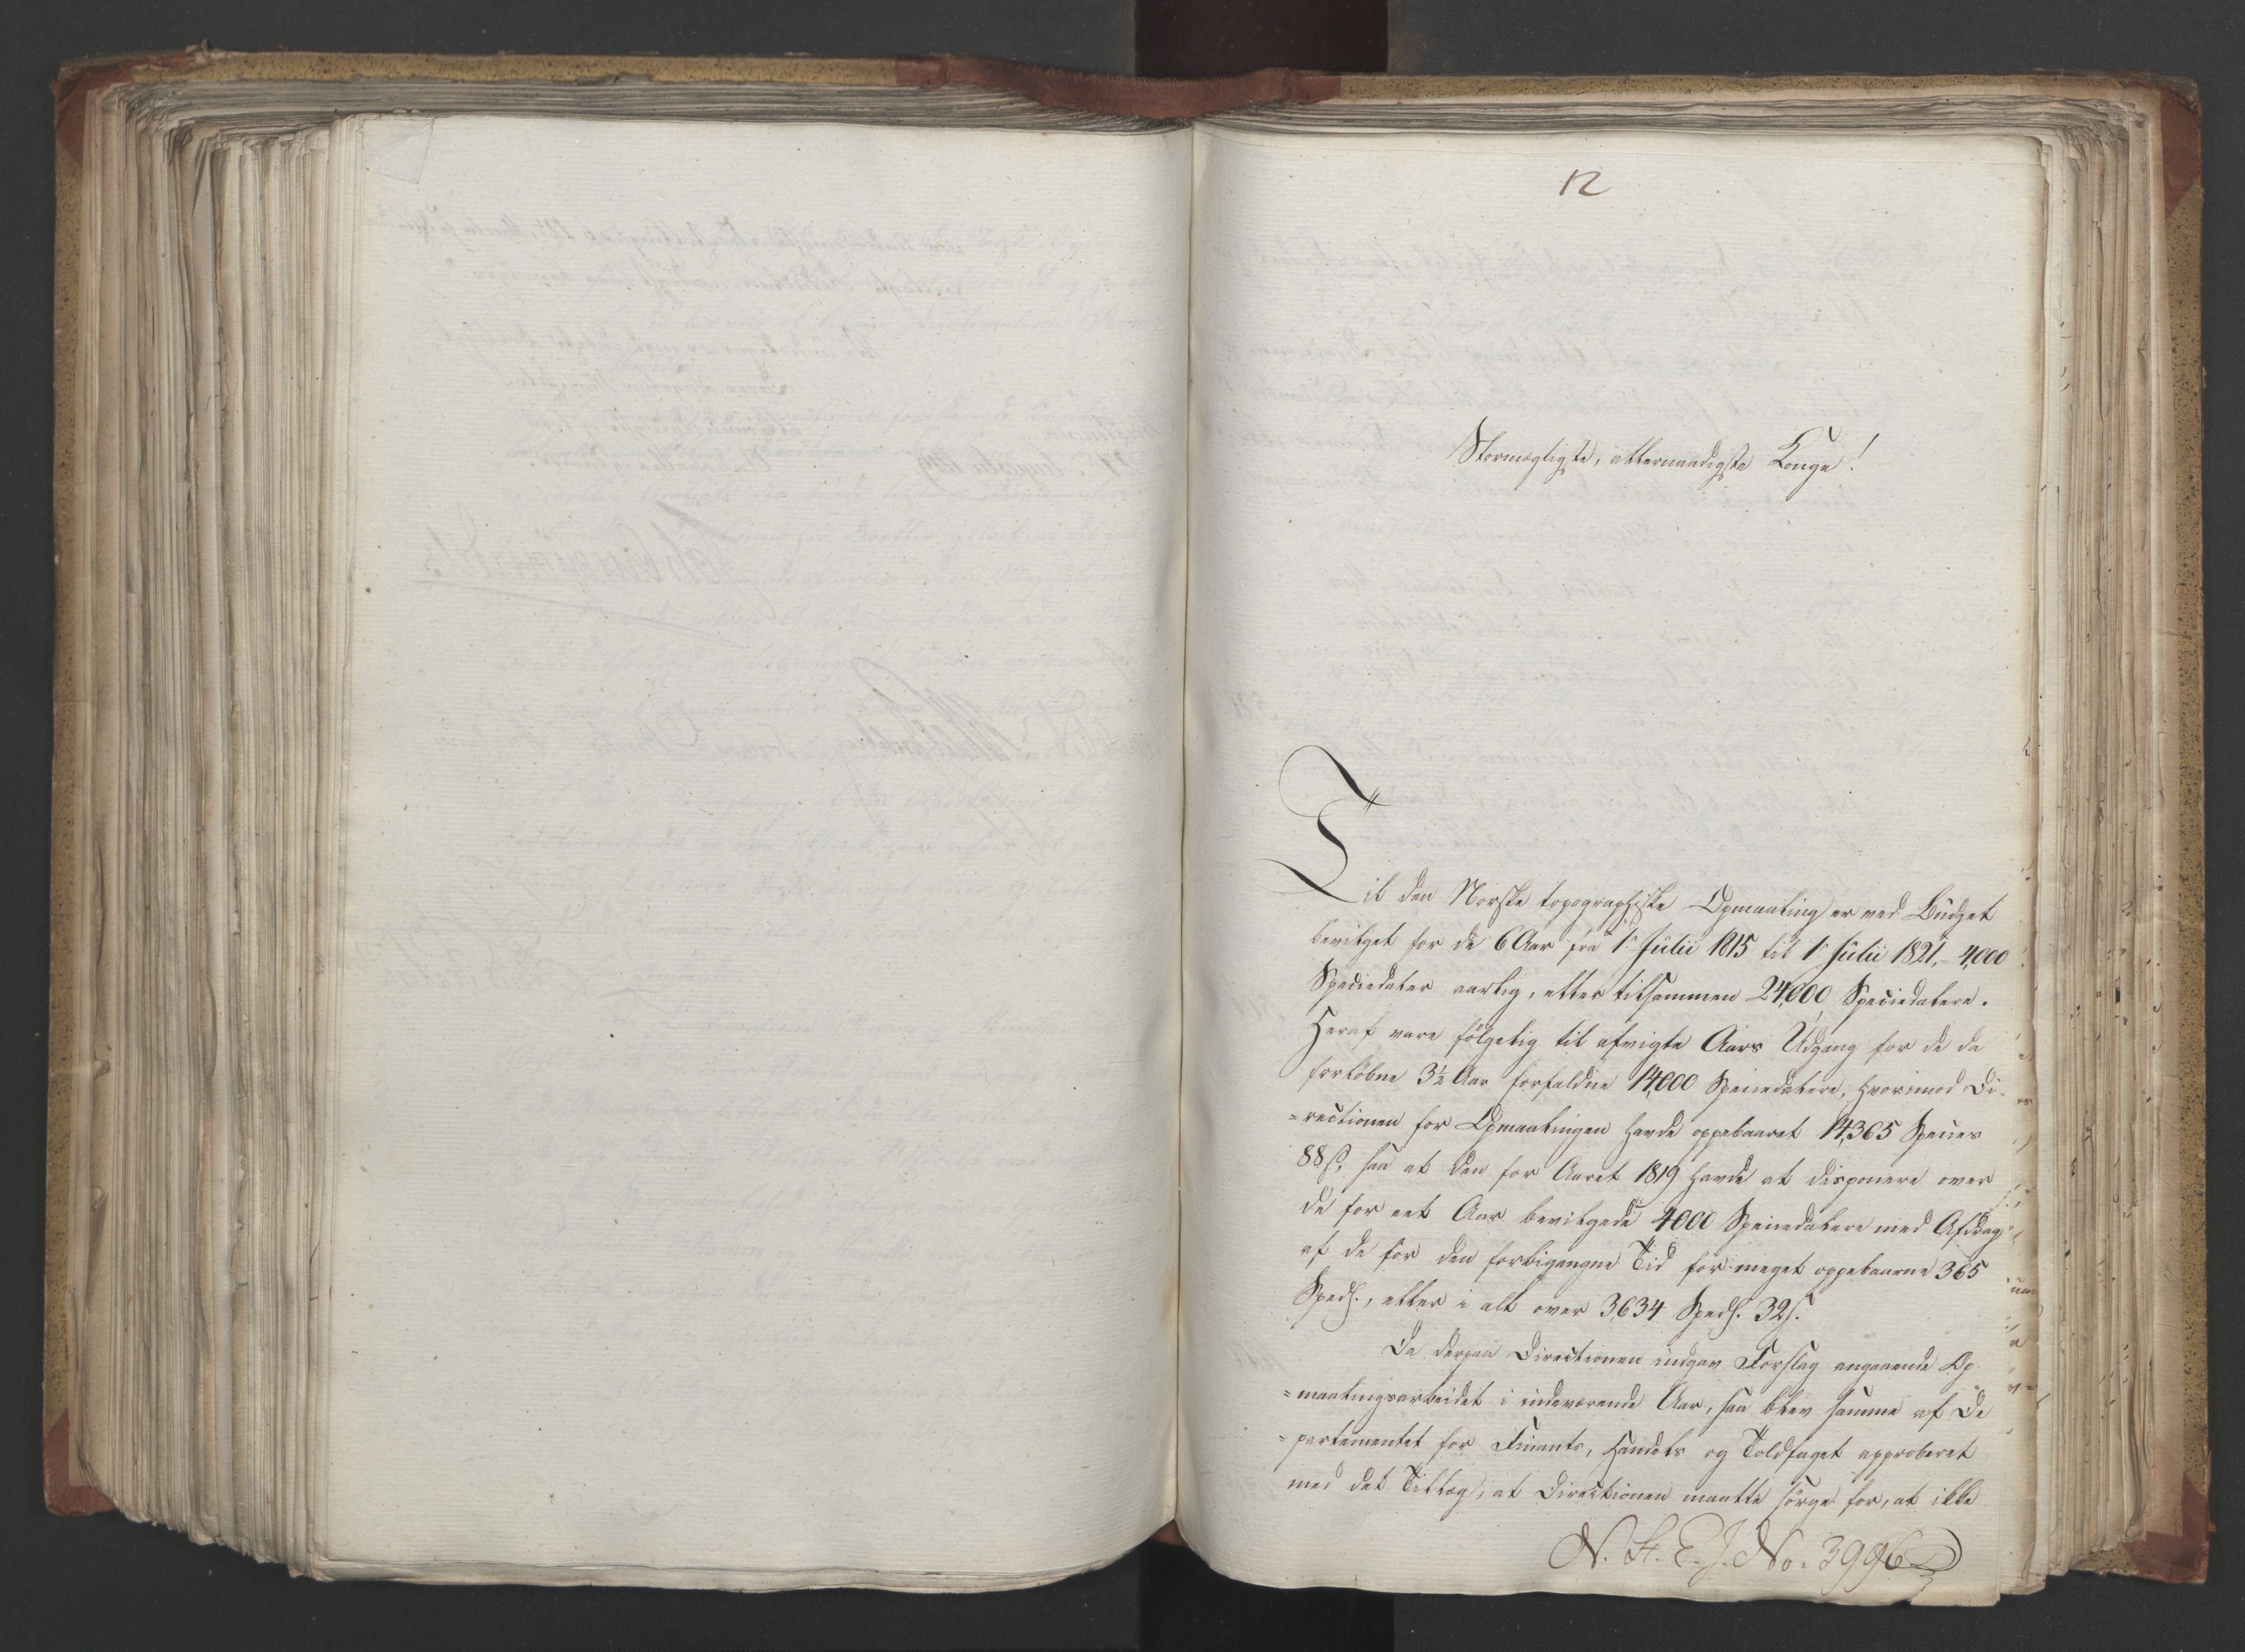 12
Stormægtigste, allernaadigste Konge!
Til den Norske topographiske Opmaaling er ved Budget
bevilget for de 6 Aar fra 1. Julii 1815 til 1. Julii 1821, 4,000
Speciedaler aarlig, eller tilsammen 24,000 Speciedalere.
Heraf vare fölgelig til afvigte Aars Udgang for de da
forlöbne 3½ Aar forfaldne 14,000 Speciedalere, hvorimod Di-
=rectionen for Opmaalingen havde oppebaaret 14,365 Specier
88 s, saa at den for Aaret 1819 havde at disponere over
de for eet Aar bevilgede 4000 Speciedalere med Afdrag
af de for den forbigangne Tid for meget oppebaarne 365
Spedlr., eller i alt over 3,634 Spedlr. 32 s.
Da derpaa Directionen indgav Forslag angaaende Op-
=maalingsarbeidet i indeværende Aar, saa blev samme af De
=partementet for Finants, Handels og Toldfaget approberet
med det Tillæg, at Directionen maatte sörge for, at ikke
N. St. E. J. No. 3996